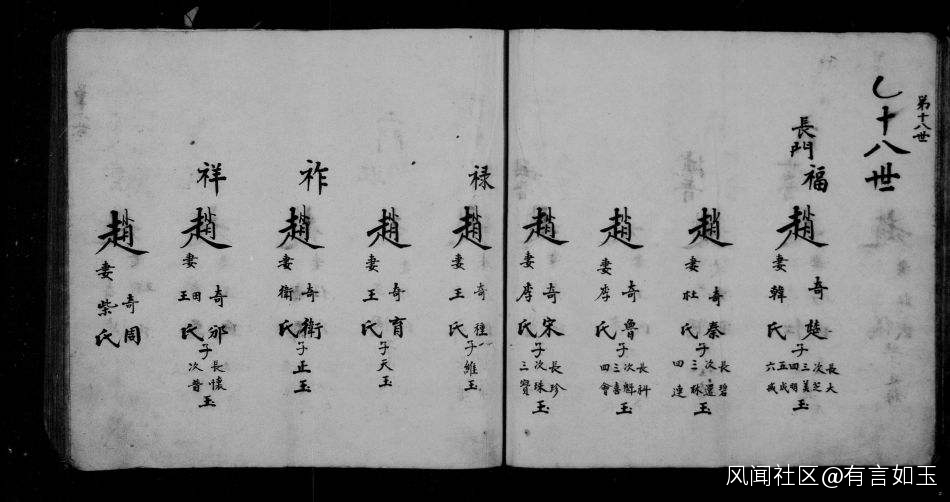 第十八世
乚十八世
長門
福
趙 奇楚
妻韓氏
子 長大 次芝 三美 四羽 五成 六 玉
趙 奇秦
妻杜氏
子 長碧 次還 三林 四連 玉
趙 奇魯
妻李氏
子 長科 次 三喜 四會 玉
趙 奇宋
妻李氏
子 長珍 次珠 三寶 玉
禄
趙 奇
妻王氏
子維玉
趙 奇育
妻王氏
子天玉
祚
趙 奇衛
妻衛氏
子正玉
祥
趙 奇邠
妻田王氏
子 長懷 次普 玉
趙 奇周
妻柴氏
风闻社区@有言如玉